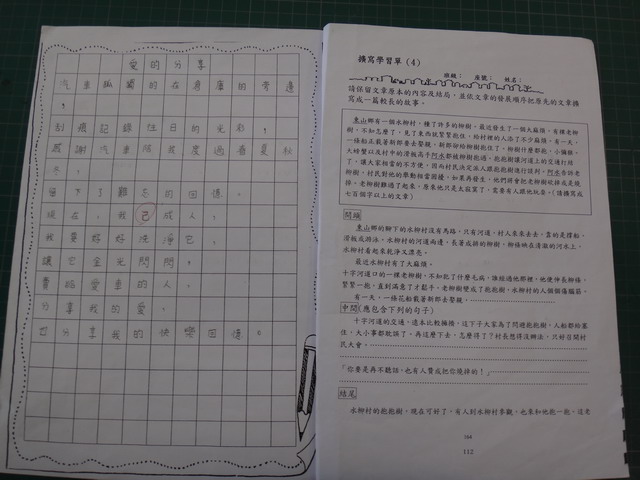 愛的分享
汽車孤獨的在倉庫的旁邊
，
刮痕記錄往日的光彩，
感謝汽車陪我度過春夏秋
冬，
留下了難忘的回憶。
現在，我己成人，
我要好好洗淨它，
讓它金光閃閃，
賣給愛車的人，
分享我的愛，
也分享我的快樂回憶。
擴寫學習單（4）
班級： 座號： 姓名：
請保留文章原本的內容及結局，並依文章的發展順序把原先的文章擴
寫成一篇較長的故事。
東山鄉有一個水柳村，種了許多的柳樹，最近發生了一個大麻煩，有棵老柳
樹，不知怎麼了，見了東西就緊緊抱住，給村裡的人添了不少麻煩。一天，
七百個字以上的文章）
開頭
東山鄉的腳下的水柳村沒有馬路，只有河道，村人乘來去去，靠的是撐船、
滑板或游泳，水柳村的河道兩邊，長著成排的柳樹，柳條映在清澈的河水上，
水柳村看起來乾淨又漂亮。
最近水柳村有了大麻煩。
十字河道口的一棵老柳樹，不知犯了什麼毛病，誰經過他那裡，他便伸長柳條，
緊緊一抱，直到滿意了才鬆手。老柳樹變成了抱抱樹，水柳村的人個個傷腦筋。
有一天，一條花船載著新郎去娶親，
中間(應包含下列的句子)
十字河道的交通，這本比較擁擠，這下子大家為了閃避抱抱樹，人船都給塞
住，大小事都耽誤了，再這麼下去，怎麼得了？村長想得沒辦法，只好召開村
民大會。
「你要是再不聽話，也有人贊成把你燒掉的！」
結尾
水柳村的抱抱樹，現在可好了，有人到水柳村參觀，也來和他抱一抱，這老
112